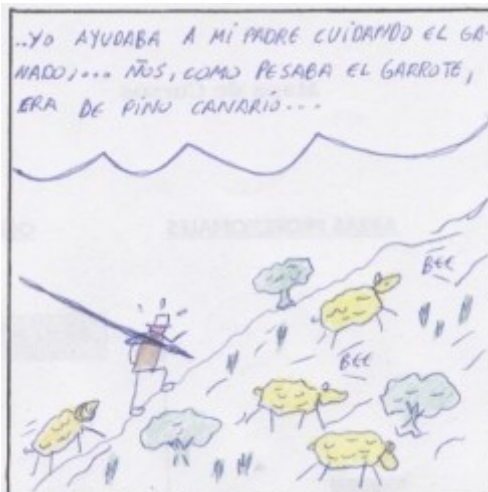 ..YO AYUDABA A MI PADRE CUIDANDO EL GA-
NADO;... ÑOS, COMO PESABA EL GARROTE,
ERA DE PINO CANARIO...
BEE
BEE